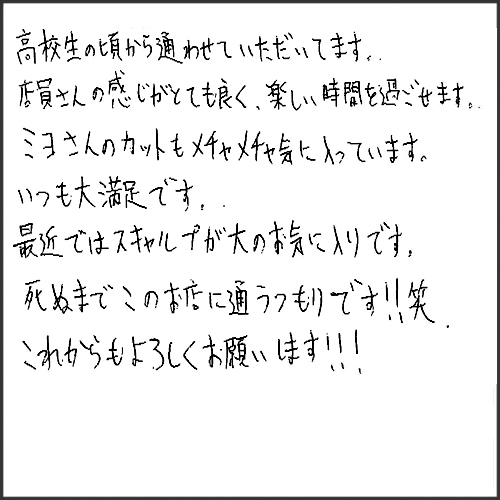 高校生の頃から通わせていただいてます。
店員さんの感じがとても良く、楽しい時間を過ごせます。
ミヨさんのカットもメチャメチャ気に入っています。
いつも大満足です。
最近ではスキャルプが大のお気に入りです。
死ぬまでこのお店に通うつもりです!!笑
これからもよろしくお願いします!!!